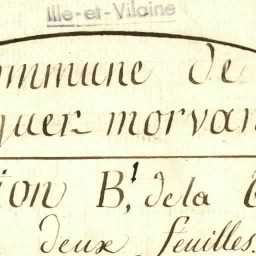 Ille-et-Vilaine
ommune de
guer morvan
ion B, 1 de la
deux feuilles.